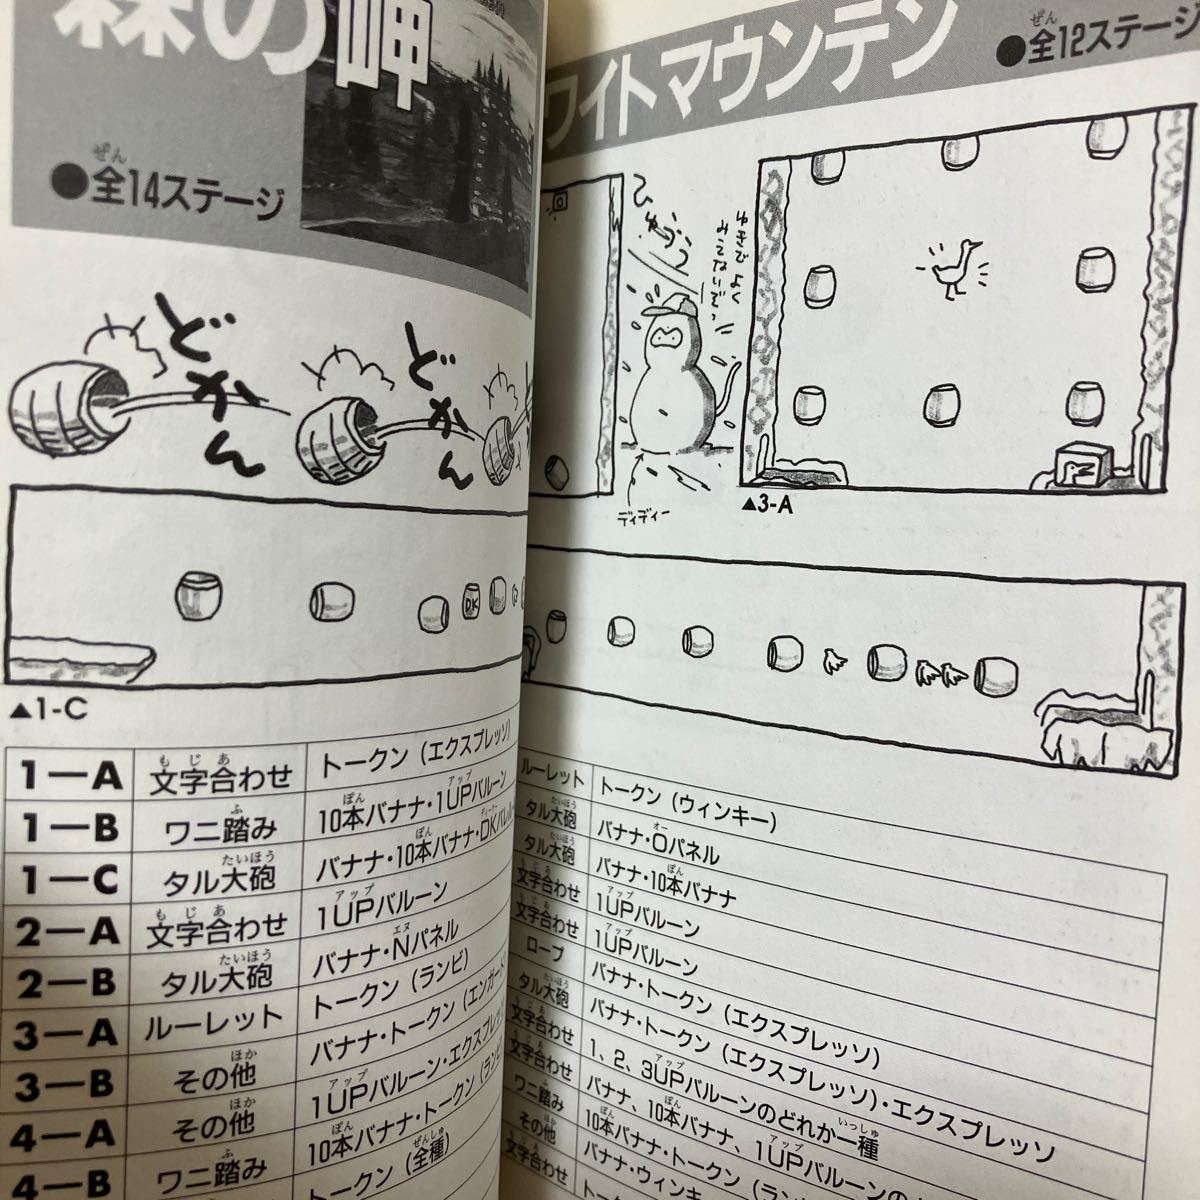 森の岬
●全14ステージ
ぜん
どかん
どかん
DK
▲1-C
1—A 文字合わせ トークン(エクスプレッソ)
1—B ワニ踏み 10本バナナ・1UPバルーン
1—C タル大砲 バナナ・10本バナナ・DKバレル
2—A 文字合わせ 1UPバルーン
2—B タル大砲 バナナ・Nパネル
3—A ルーレット トークン(ランビ)
3—B その他 バナナ・トークン(エンガード)
4—A その他 1UPバルーン・エクスプレッソ
4—B ワニ踏み 10本バナナ・トークン(ランビ)
トークン(全種)
ワイトマウンテン
●全12ステージ
ぜん
ひゅうう
ゆきでよく
みてないで。
ディディー
▲3-A
ルーレット トークン(ウィンキー)
タル大砲 バナナ・Oパネル
タル大砲 バナナ・10本バナナ
文字合わせ 1UPバルーン
文字合わせ 1UPバルーン
ロープ バナナ・トークン(エクスプレッソ)
タル大砲 バナナ・トークン(エクスプレッソ)・エクスプレッソ
文字合わせ 1、2、3UPバルーンのどれか一種
文字合わせ バナナ、10本バナナ、1UPバルーンの
ワニ踏み 10本バナナ・トークン
その他 バナナ・ウィンキー
文字合わせ トークン